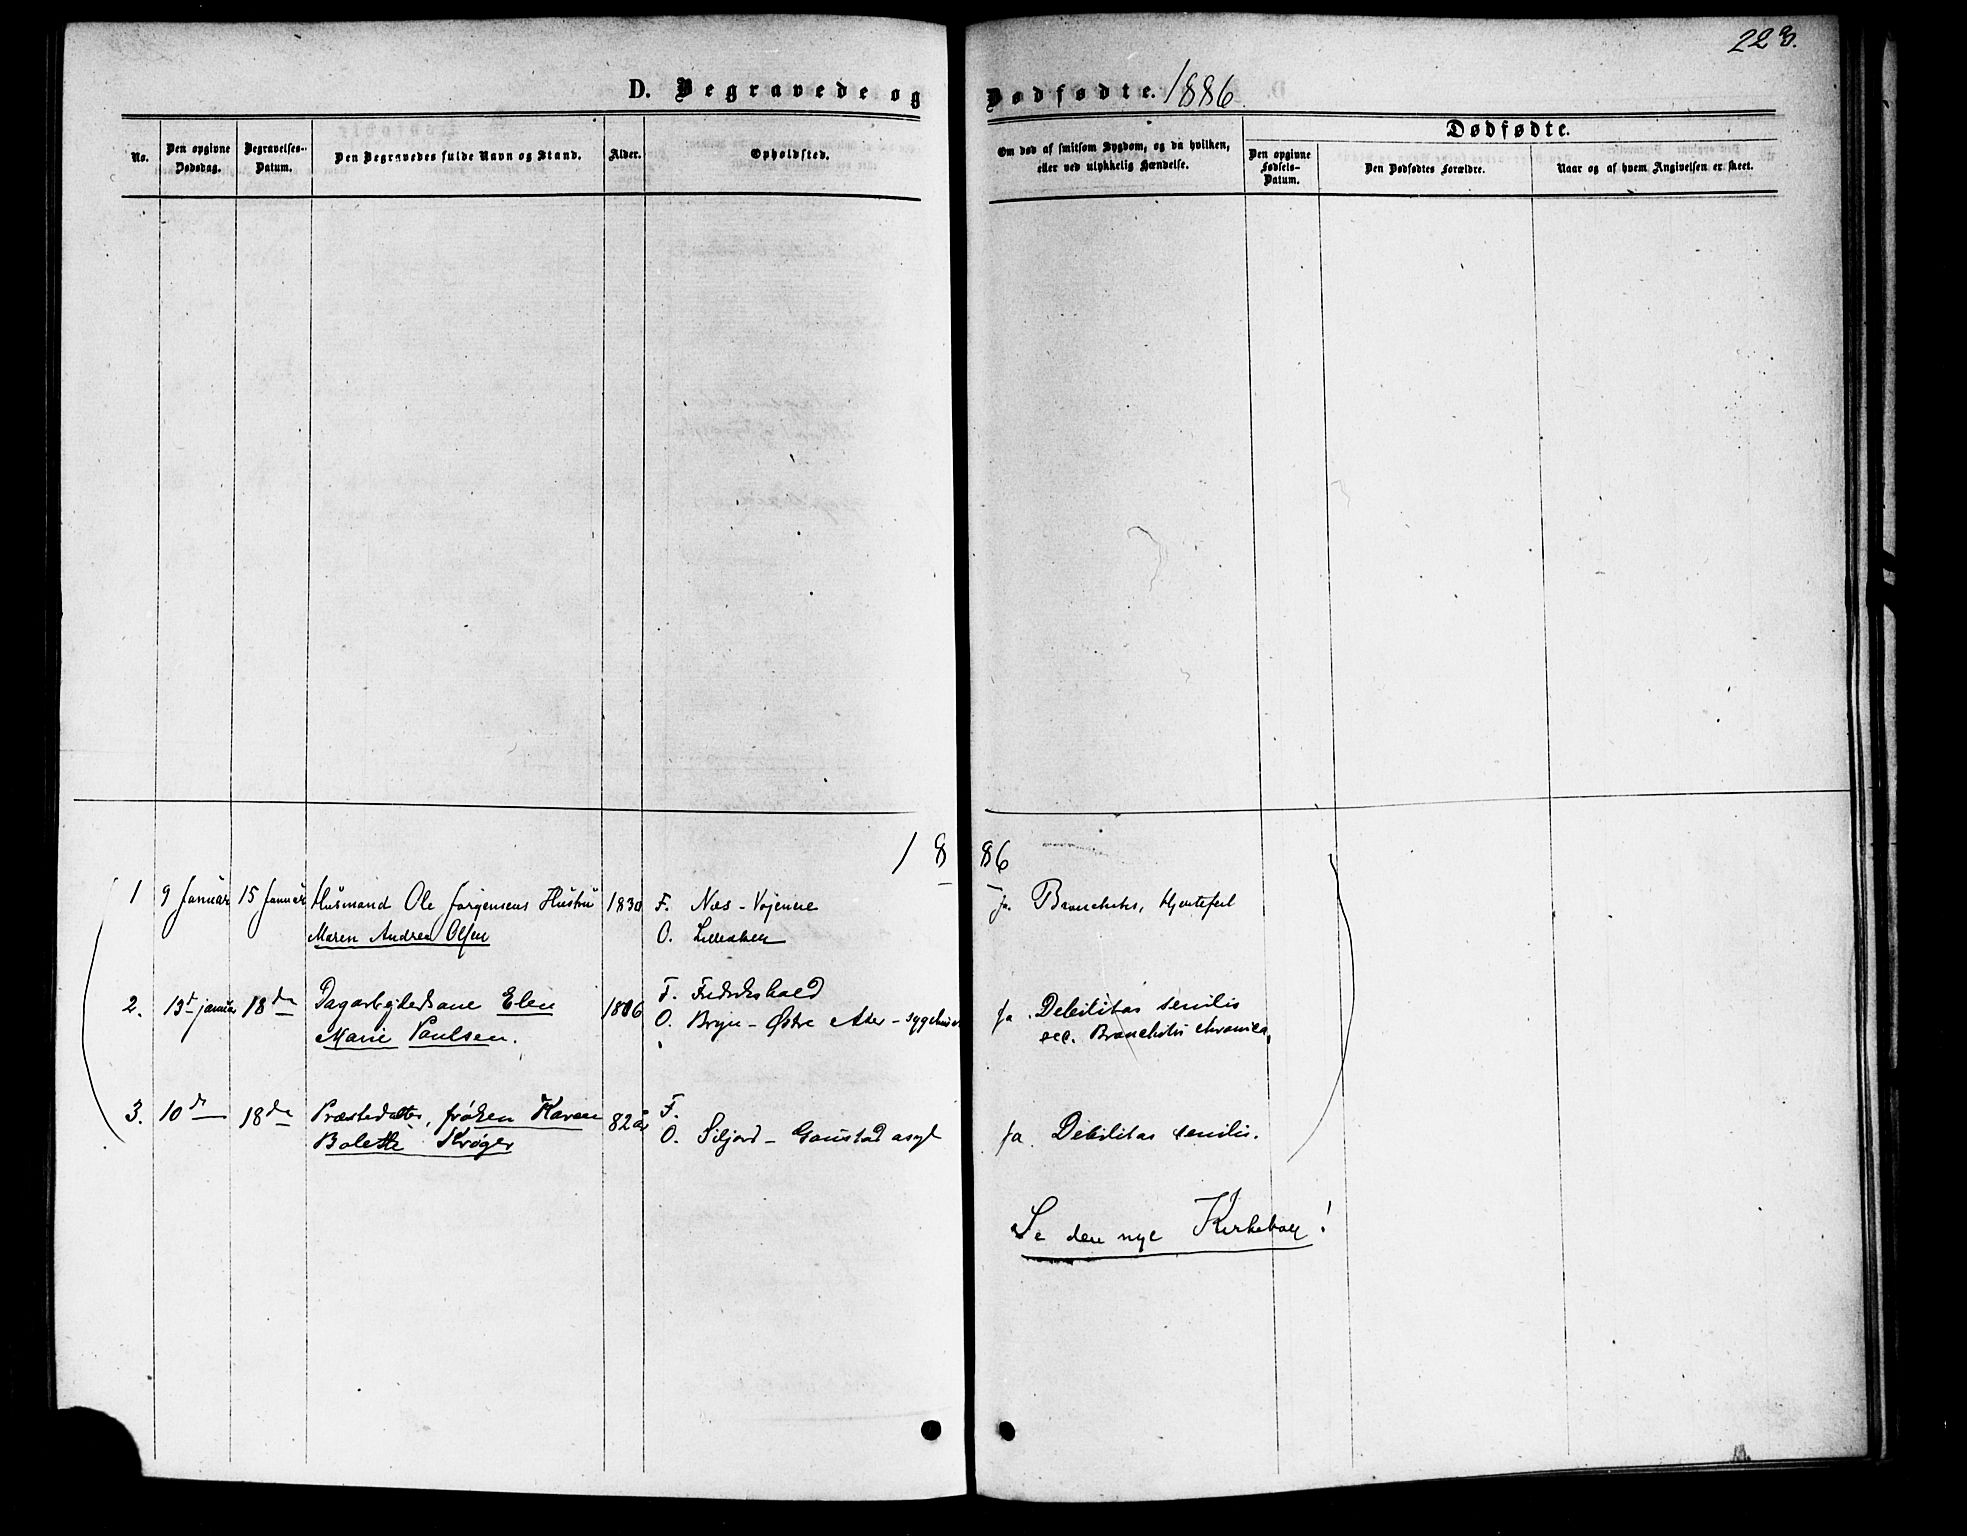 223.
D. Begravede og Dødfødte. 1886
No.
Den opgivne Dødsdag.
Begravelses-Datum.
Den Begravedes fulde Navn og Stand.
Alder.
Opholdsted.
Om død af smitsom Sygdom, og da hvilken, eller ved ulykkelig Hændelse.
Dødfødte.
Den opgivne Fødsels-Datum.
Den Dødfødtes Forældre.
Naar og af hvem Angivelsen er skeet.
1886
1 9 Januar 15 Januar Husmand Ole Jørgensens Hustru 1830 F. Næs - Vøjenene ja. Bronchitis, Hjertefeil
Maren Andrea Olsen O. Lilleaker
2. 13d januar 18de Elen 1806 F. Fredrikshald ja. Debilitas senilis
Marie Paulsen. O. Bryn - Østre Aker - sygehus acc. Bronchitis chronica,
3. 10de 18de frøken Karen 82 år F.
Bolette Krøger O. Siljord - Gaustad asyl ja. Debilitas senilis.
Se den nye Kirkebog!